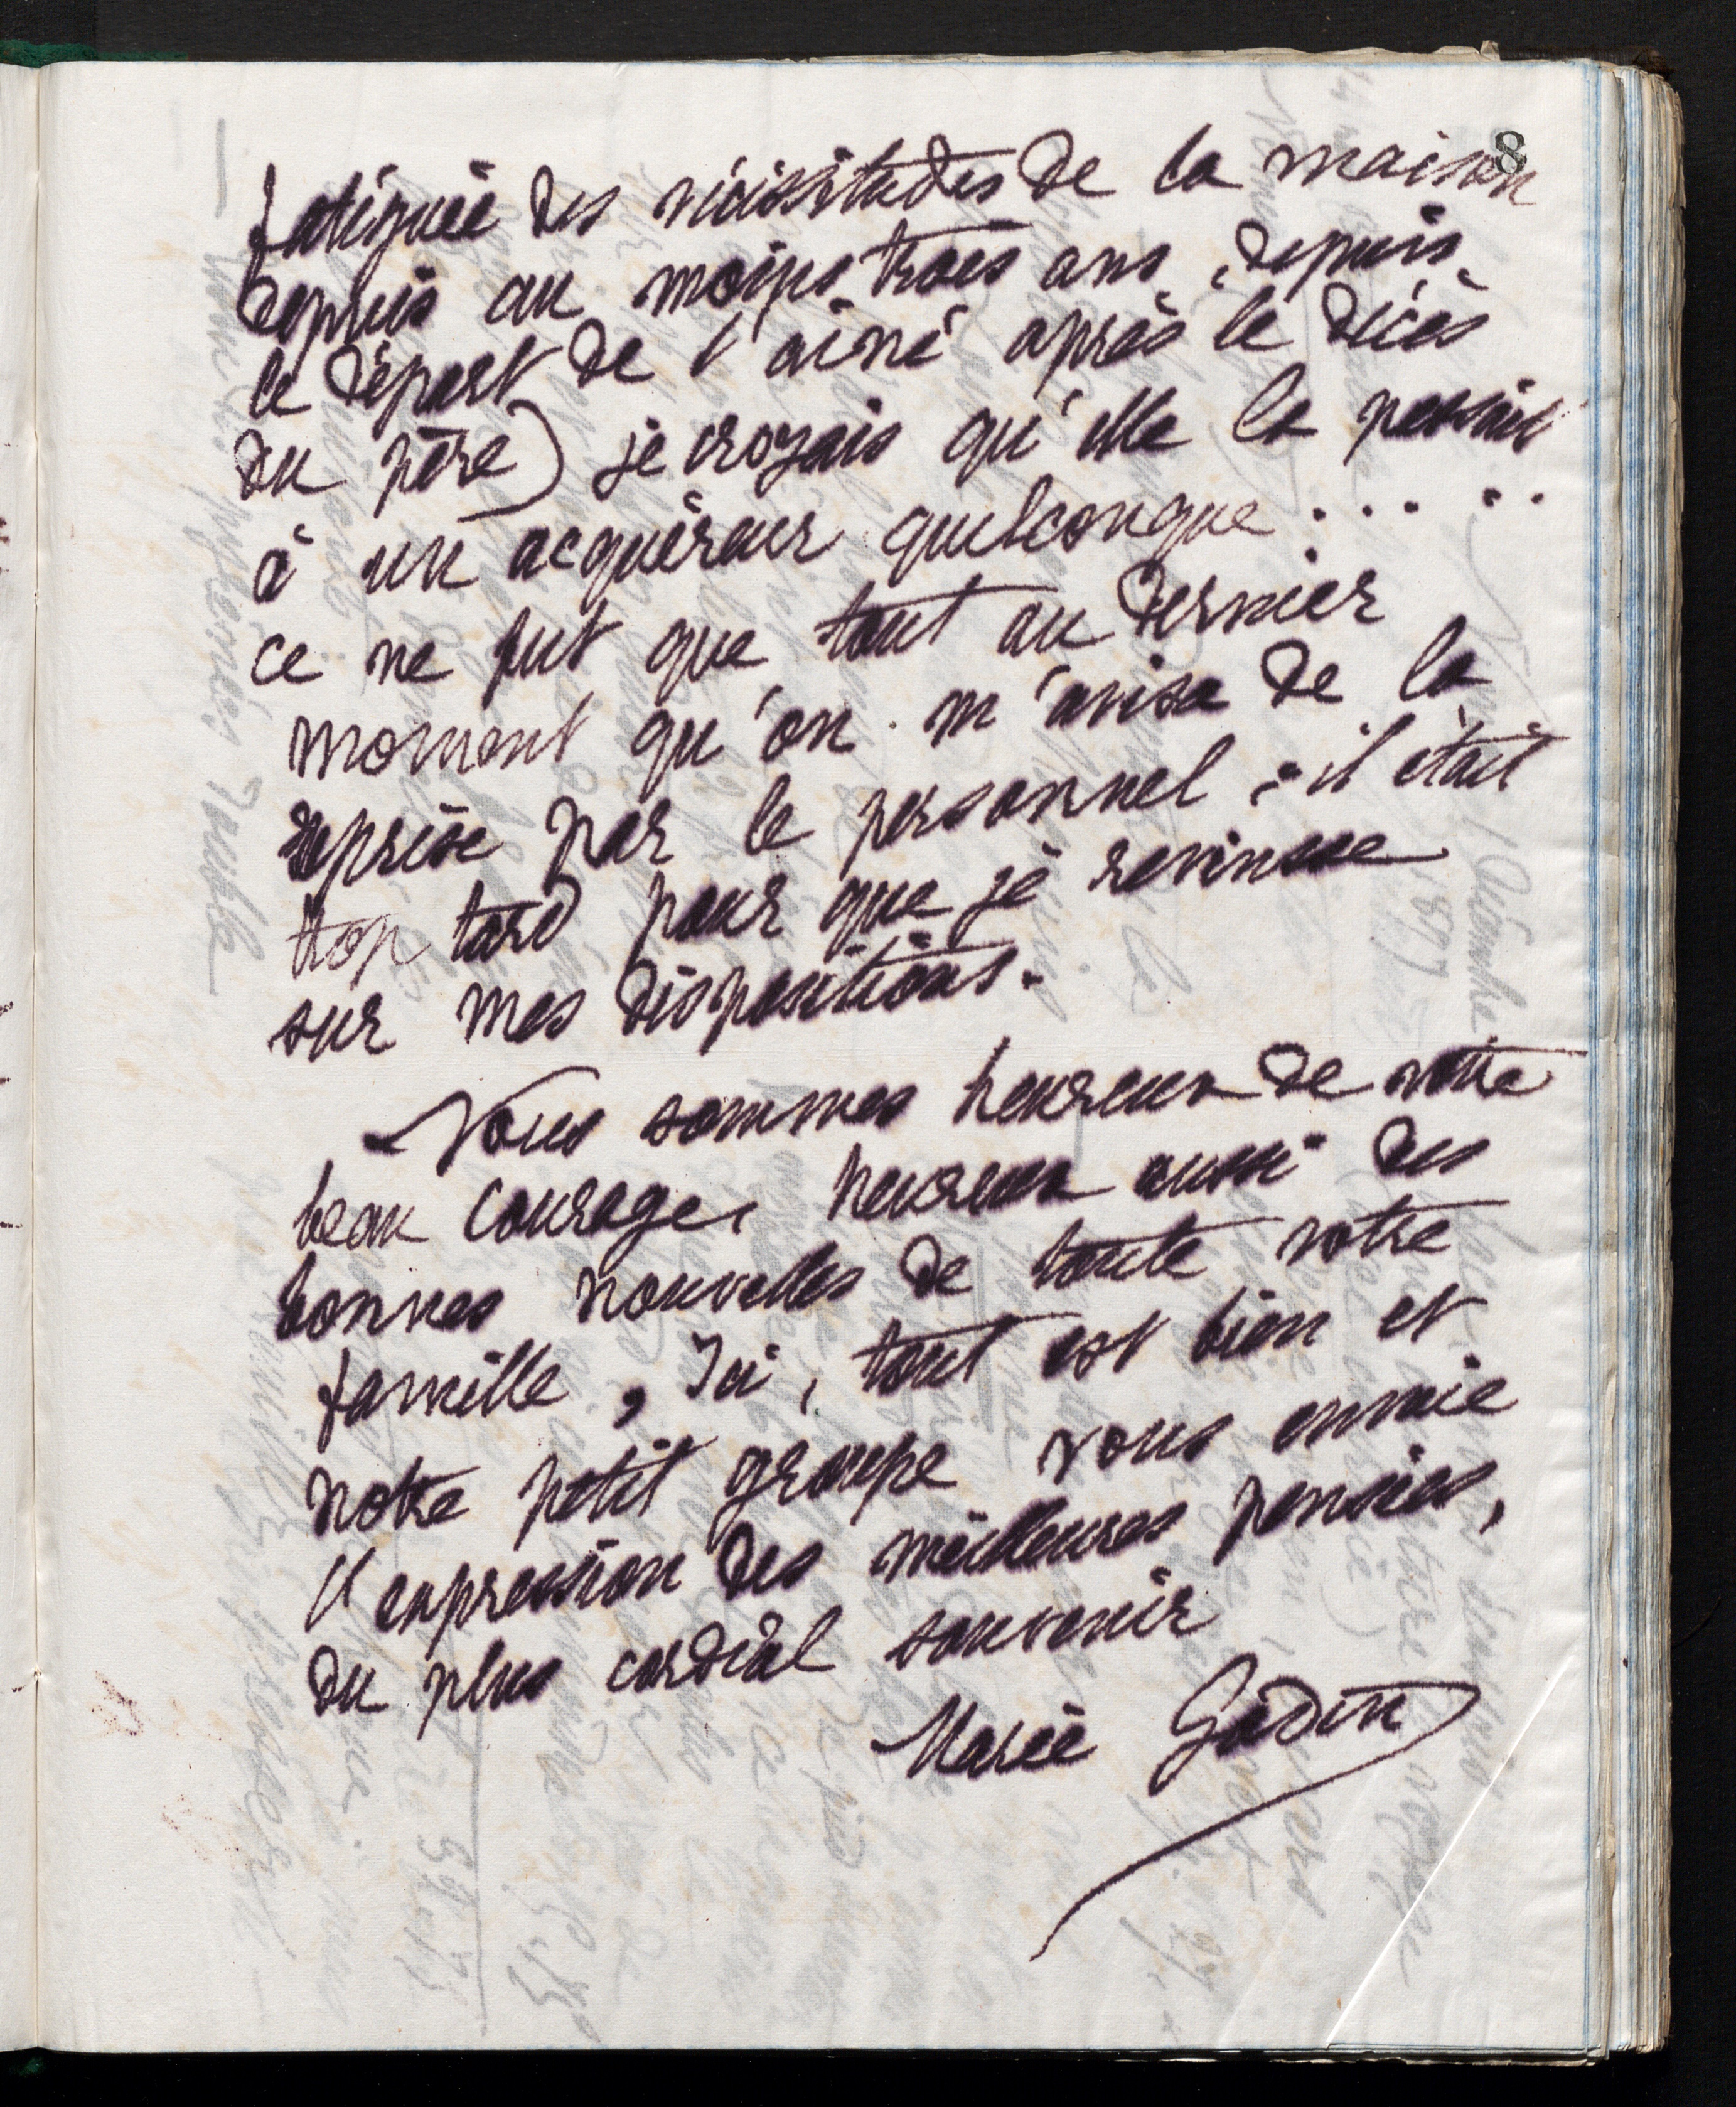 8
fatiguée des vicissitudes de la maison
depuis au moins trois ans, depuis
le départ de l'aîné après le décès
du père) je croyais qu'elle la passait
à un acquéreur quelconque . . . . .
ce ne fut que tout au dernier
moment qu'on m'avisa de la
reprise par le personnel ; il était
trop tard pour que je revinsse
sur mes dispositions.
Nous sommes heureux de votre
beau courage, heureux aussi des
bonnes nouvelles de toute votre
famille, Ici, tout est bien et
notre petit groupe vous envoie
l'expression des meilleures pensées,
du plus cordial souvenir
Marie Godin